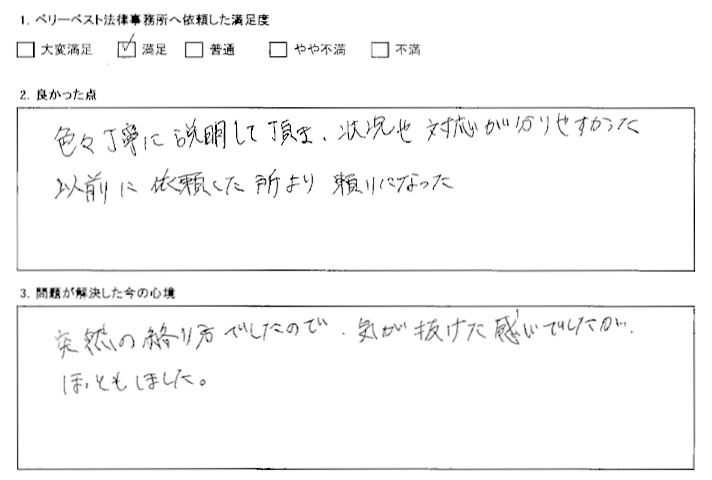 1. ベリーベスト法律事務所へ依頼した満足度
□ 大変満足 ☑ 満足 □ 普通 □ やや不満 □ 不満
2. 良かった点
色々丁寧に説明して頂き、状況や対応が分りやすかった
以前に依頼した所より頼りになった
3. 問題が解決した今の心境
突然の終り方でしたので、気が抜けた感じでしたが、
ほっともしました。